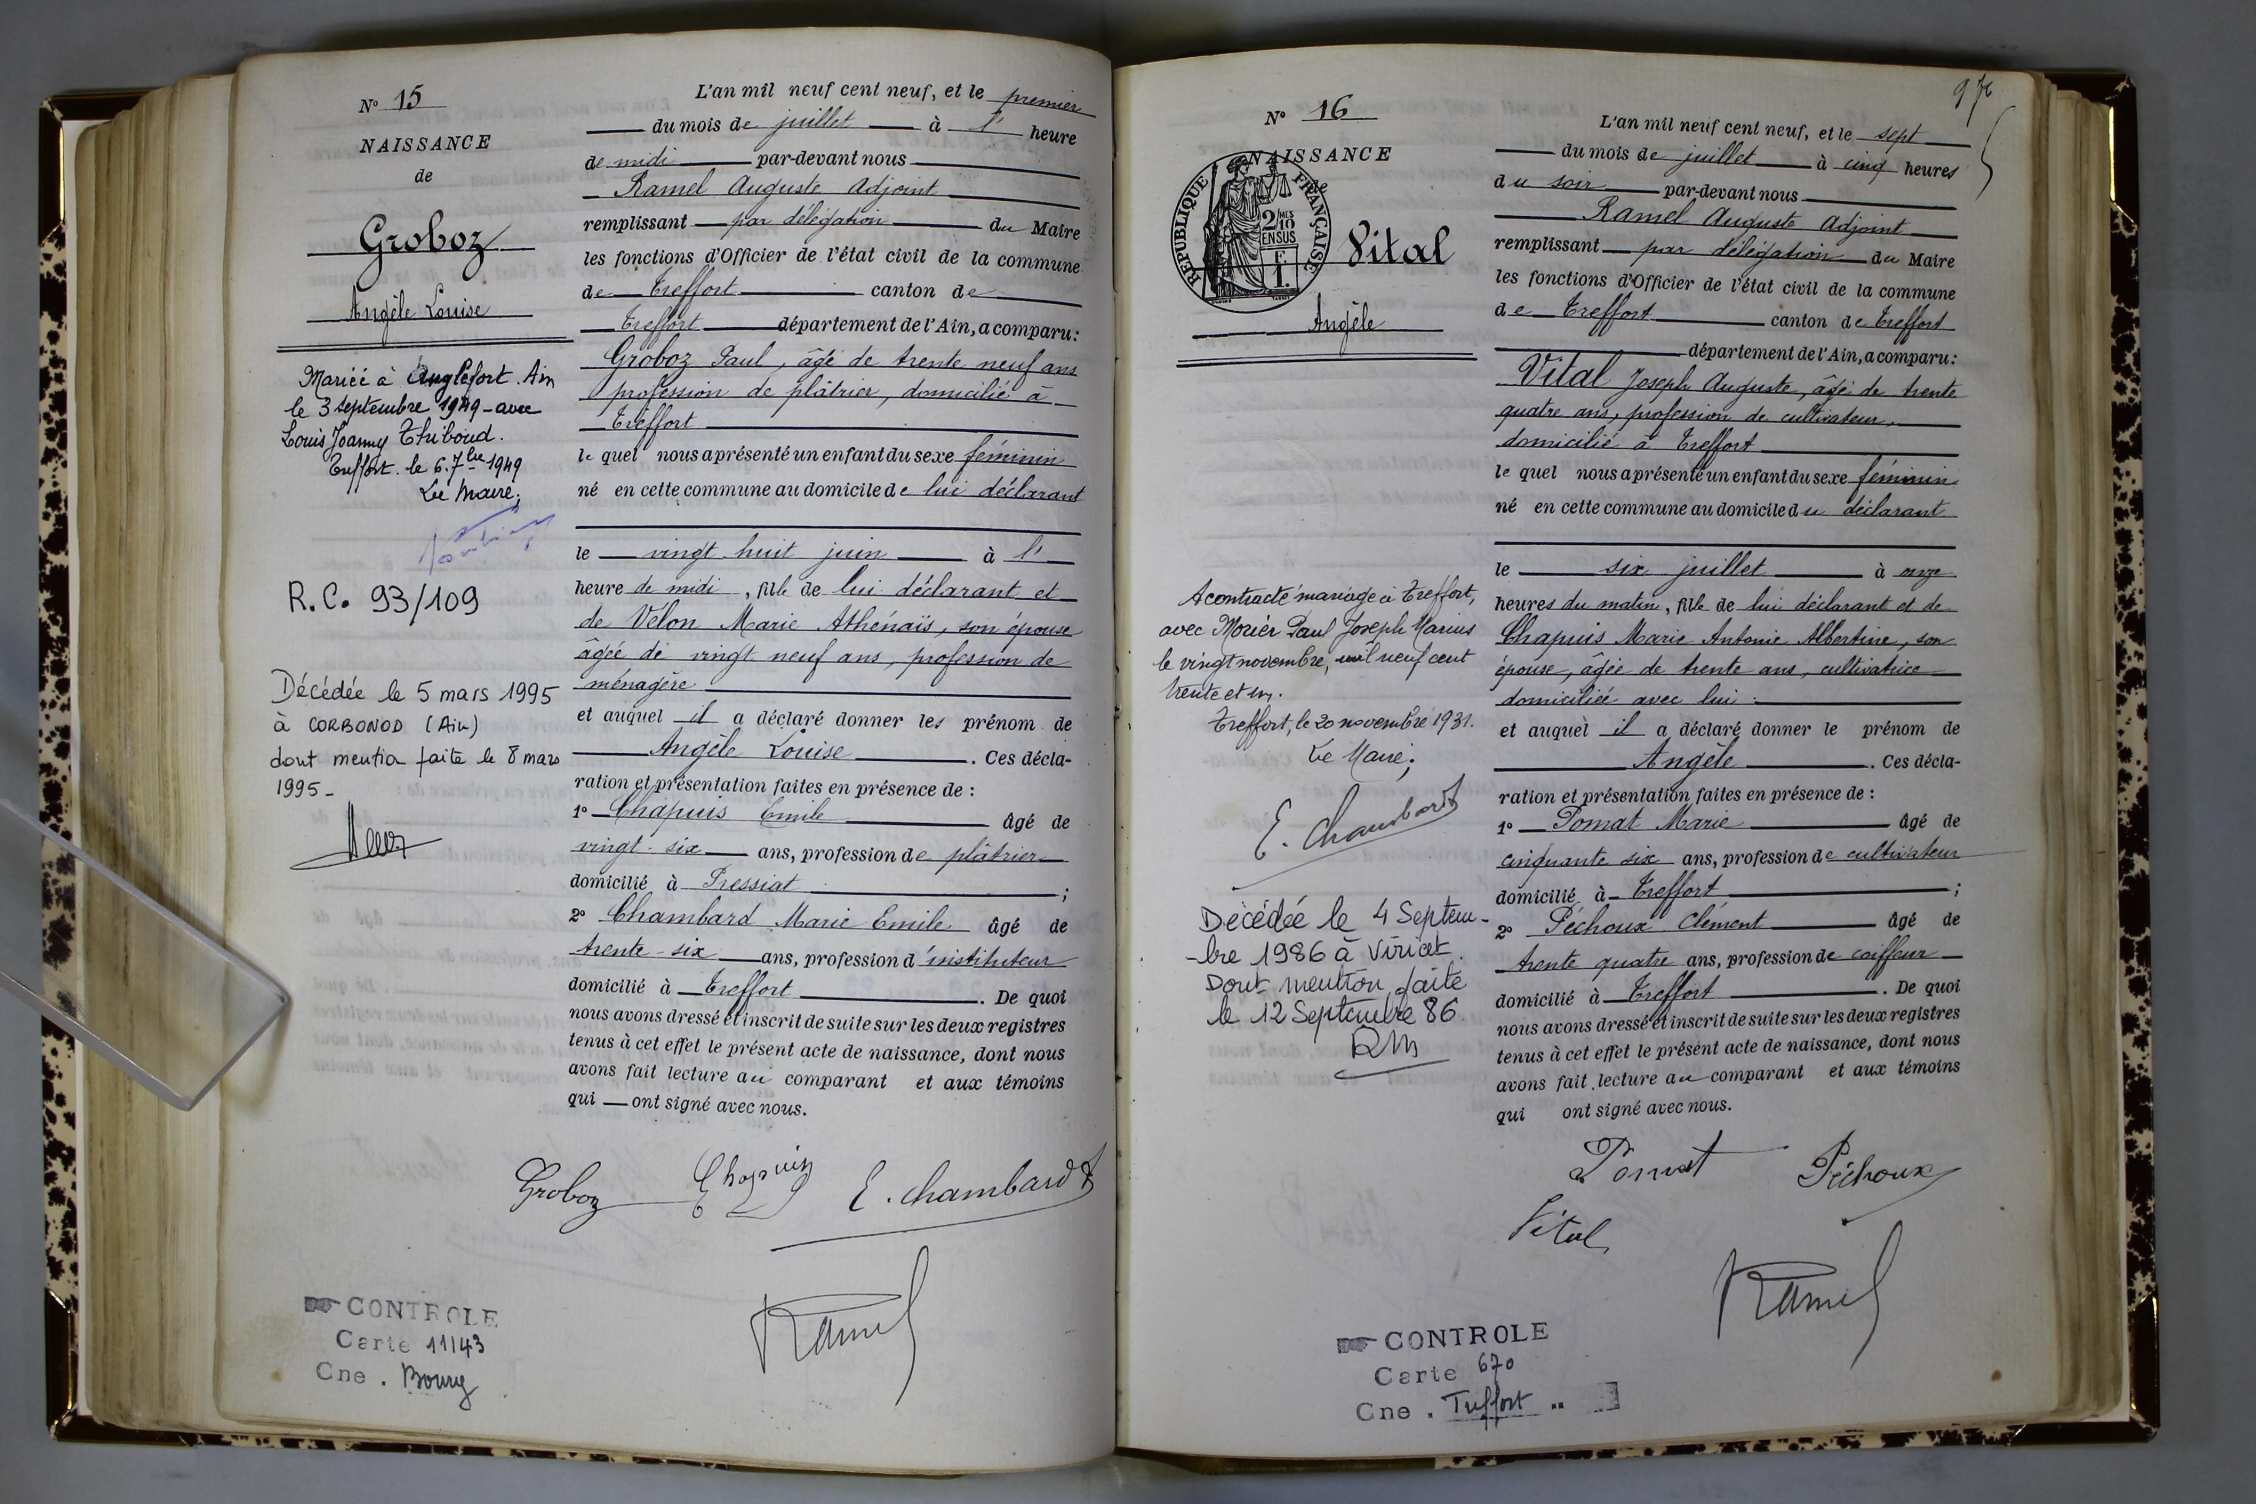 N° 15
NAISSANCE
de
Groboz
Angèle Louise
Mariée à Anglefort. Ain
le 3 septembre 1949 - avec
Louis Joanny Thiboud.
Treffort. le 6. 7bre 1949
Le Maire;
R.C. 93/109
Décédée le 5 mars 1995
à CORBONOD (Ain)
dont mention faite le 8 mars
1995 -
L'an mil neuf cent neuf, et le premier
du mois de juillet à l' heure
de midi par-devant nous
Ramel Auguste Adjoint
remplissant par délégation du Maire
les fonctions d'Officier de l'état civil de la commune
de Treffort canton de
Treffort département de l'Ain, a comparu:
Groboz Paul, âgé de trente neuf ans
profession de plâtrier, domicilié à
Treffort
le quel nous a présenté un enfant du sexe féminin
né en cette commune au domicile de lui déclarant
le vingt huit juin à l'
heure de midi, fille de lui déclarant et
de Vélon Marie Athénaïs, son épouse
âgée de vingt neuf ans, profession de
ménagère
et auquel il a déclaré donner les prénom de
Angèle Louise. Ces décla-
ration et présentation faites en présence de :
1° Chapuis Emile âgé de
vingt-six ans, profession de plâtrier
domicilié à Pressiat ;
2° Chambard Marie Emile âgé de
trente-six ans, profession d'instituteur
domicilié à Treffort. De quoi
nous avons dressé et inscrit de suite sur les deux registres
tenus à cet effet le présent acte de naissance, dont nous
avons fait lecture au comparant et aux témoins
qui ont signé avec nous.
Groboz Chapuis E. Chambard
Ramel
CONTROLE
Carte 11143
Cne. Bourg
976
N° 16
NAISSANCE
de
RÉPUBLIQUE FRANÇAISE
2/10 MES
EN SUS
F
1.
Vital
Angèle
A contracté mariage à Treffort,
avec Morier Paul Joseph Marius
le vingt novembre, mil neuf cent
trente et un.
Treffort, le 20 novembre 1931.
Le Maire;
E. Chambard
Décédée le 4 Septem-
-bre 1986 à Viriat.
Dont mention faite
le 12 Septembre 86.
L'an mil neuf cent neuf, et le sept
du mois de juillet à cinq heures
du soir par-devant nous
Ramel Auguste Adjoint
remplissant par délégation du Maire
les fonctions d'Officier de l'état civil de la commune
de Treffort canton de Treffort
département de l'Ain, a comparu:
Vital Joseph Auguste, âgé de trente
quatre ans, profession de cultivateur,
domicilié à Treffort
le quel nous a présenté un enfant du sexe féminin
né en cette commune au domicile du déclarant
le six juillet à onze
heures du matin, fille de lui déclarant et de
Chapuis Marie Antonie Albertine, son
épouse, âgée de trente ans, cultivatrice
domiciliée avec lui.
et auquel il a déclaré donner le prénom de
Angèle. Ces décla-
ration et présentation faites en présence de :
1° Pomat Marie âgé de
cinquante six ans, profession de cultivateur
domicilié à Treffort ;
2° Péchoux Clément âgé de
trente quatre ans, profession de coiffeur
domicilié à Treffort. De quoi
nous avons dressé et inscrit de suite sur les deux registres
tenus à cet effet le présent acte de naissance, dont nous
avons fait lecture au comparant et aux témoins
qui ont signé avec nous.
Pomat Péchoux
Vital
Ramel
CONTROLE
Carte 670
Cne. Treffort